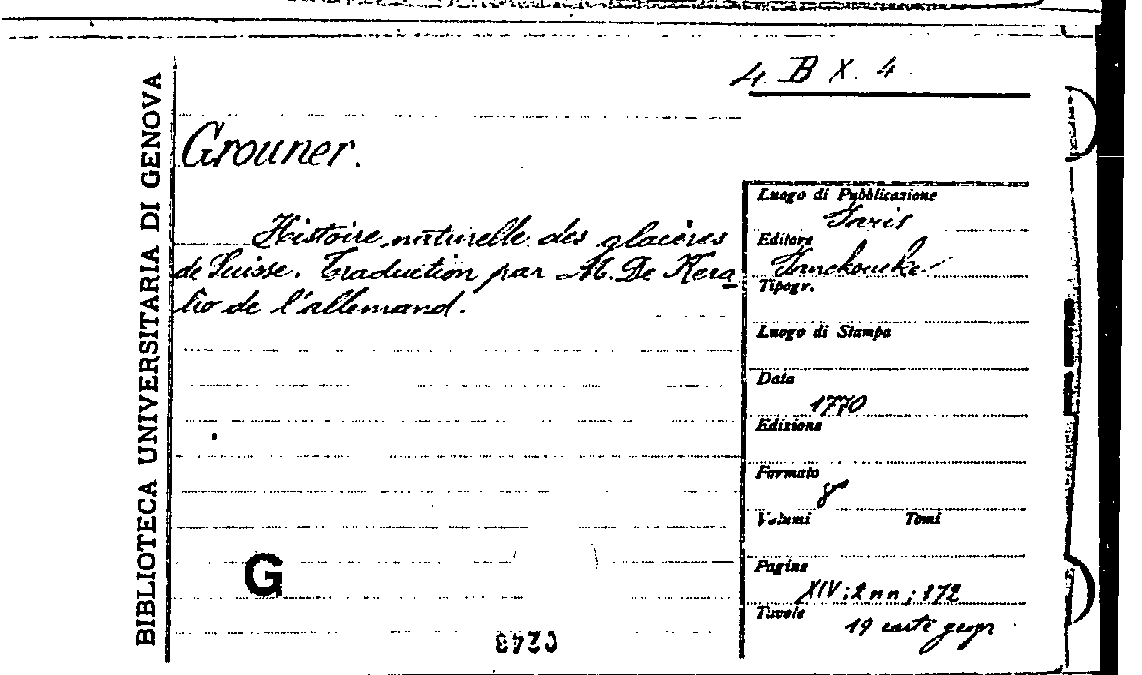 4. B X. 4
BIBLIOTECA UNIVERSITARIA DI GENOVA
Grouner.
Histoire naturelle des glacières
de Suisse. Traduction par M. De Kera-
lio de l'allemand.
Luogo di Pubblicazione
Paris
Editore
Panckoucke
Tipogr.
Luogo di Stampa
Data
1770
Edizione
Formato
8°
Volumi Tomi
Pagine
XIV; 2 nn; 172
Tavole
19 carte geogr
G